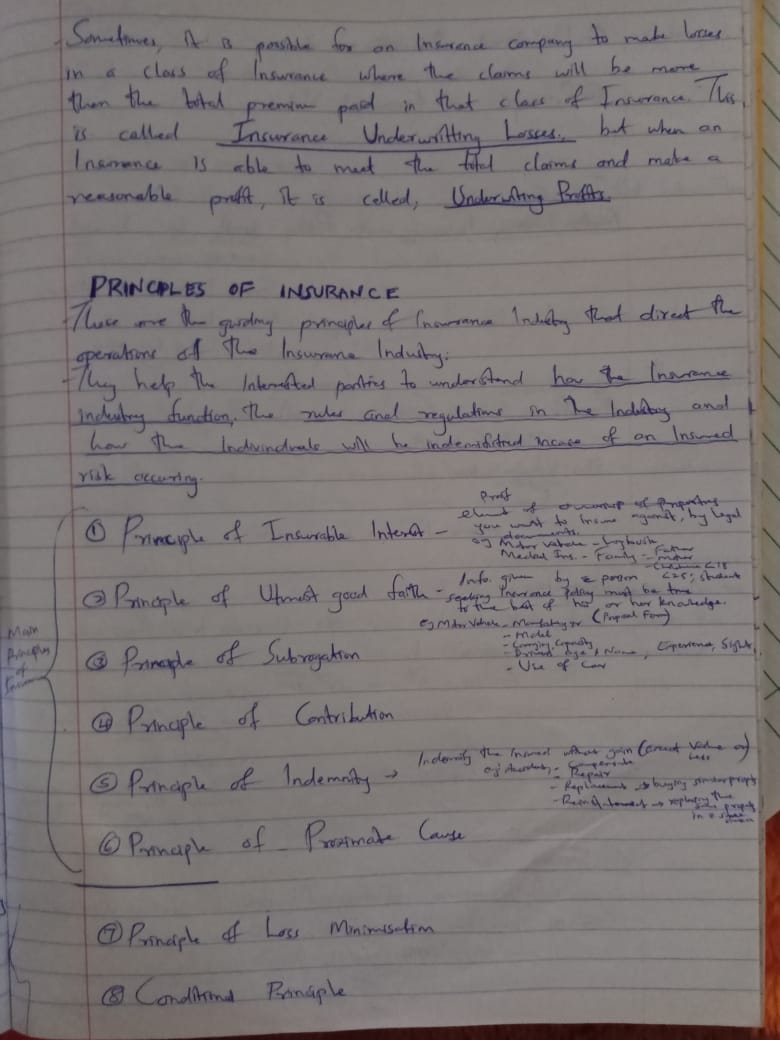 Sometimes, it is possible for an Insurance company to make losses
in a class of Insurance where the claims will be more
then the total premium paid in that class of Insurance. This
is called Insurance Underwritting Losses. but when an
Insurance is able to meet the total claims and make a
reasonable profit, it is called, Underwriting Profits.
PRINCIPLES OF INSURANCE
- These are the guiding principles of Insurance Industry that direct the
operations of the Insurance Industry.
- They help the Interested parties to understand how the Insurance
industry function, the rules and regulations in the Industry and
how the Individuals will be indemnified incase of an Insured
risk occuring.
Proof
① Principle of Insurable Interest - of ownership of
you want to Insure against, by legal
documents.
eg Motor Vehicle - logbook
Medical Ins. - Family - Father
- Mother
- Children <18
<25, students
② Principle of Utmost good faith - Info. given by a person
seeking Insurance Policy must be true
to the best of his or her knowledge.
eg Motor Vehicle - (Proposal Form)
- Model
- Carrying Capacity
- age, Name, Experience, Sight,
- Use of Car
Main
Principles
of
Insurance
③ Principle of Subrogation
④ Principle of Contribution
⑤ Principle of Indemnity → Indemnify the Insured without gain (exact Value or)
Loss
eg Accidents, - Compensate
- Repair
- Replacement → buying similar property
- Reinstatement → replacing the
same property
in a
⑥ Principle of Proximate Cause
⑦ Principle of Loss Minimisation
⑧ Conditional Principle